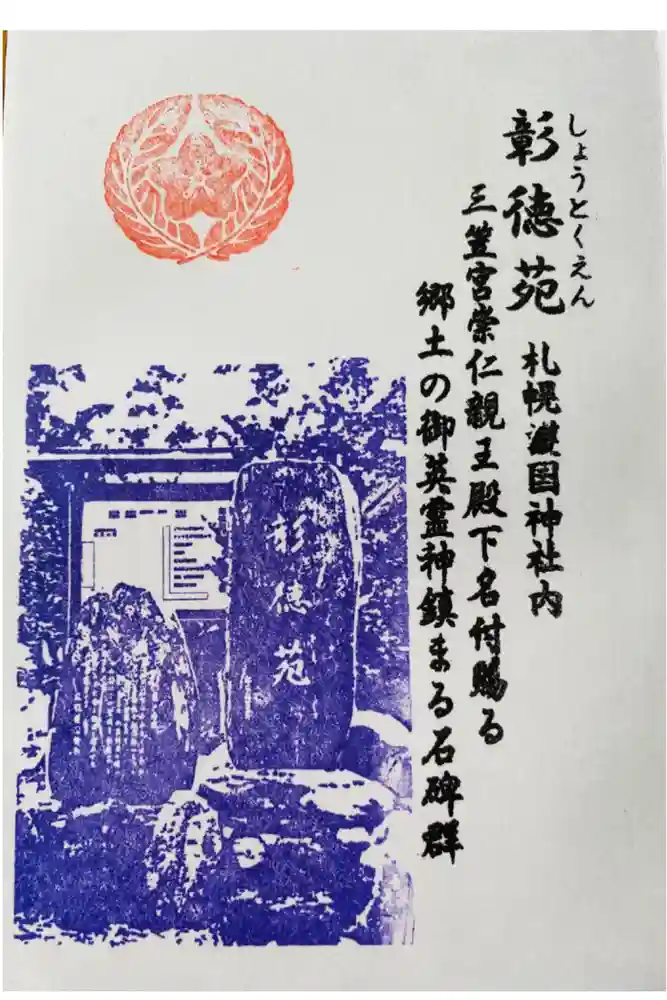 しょうとくえん
彰徳苑 札幌護国神社内
三笠宮崇仁親王殿下名付賜る
郷土の御英霊神鎮まる石碑群
彰徳苑